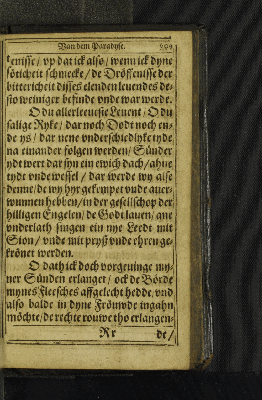 Van dem Paradyse.
tenisse / vp dat ick also / wenn ick dyne
sötichzeit schmecke / de Dröffenisse der
bittericheit disses elenden leuendes de-
sto weiniger befinde vnde war werde.
O du allerleueste Leuent / O du
salige Ryke / dar noch Dodt noch en-
de ys / dar nene vnderschiedlyke tyde
na einander folgen werden / Sünder
ydt wert dar syn ein ewich dach / ahne
tydt vnde wessel / dar werde wy alse
denne / de wy hyr gekempet vnde auer-
wunnen hebben / in der geselschop der
hilligen Engelen / de Gode lauen / ane
vnderlath singen ein nye Leedt mit
Sion / vnde mit pryß vnde ehren ge-
krönet werden.
O dath ick doch vorgeuinge my-
ner Sünden erlanget / ock de Börde
mynes fleesches affgelecht hedde, vnd
also balde in dyne Fröuwde ingahn
möchte / de rechte rouwe tho erlangen-
Rr
de /